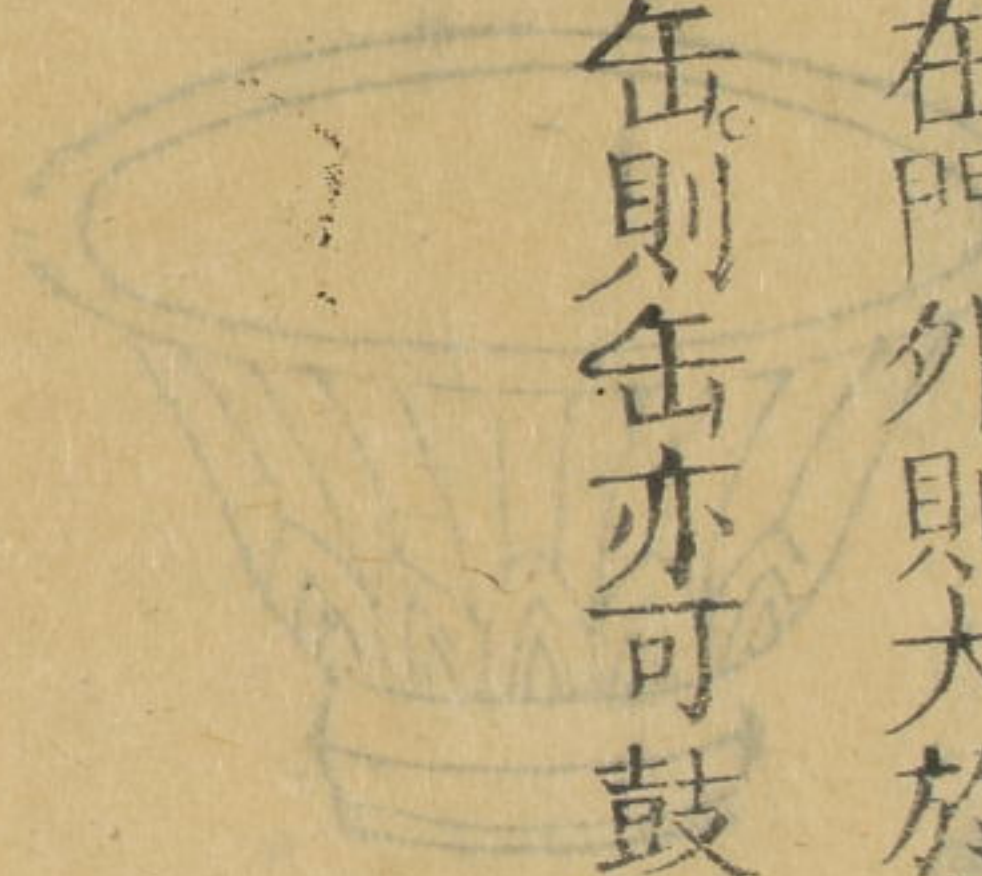 在門外則大於
缶則缶亦可鼓